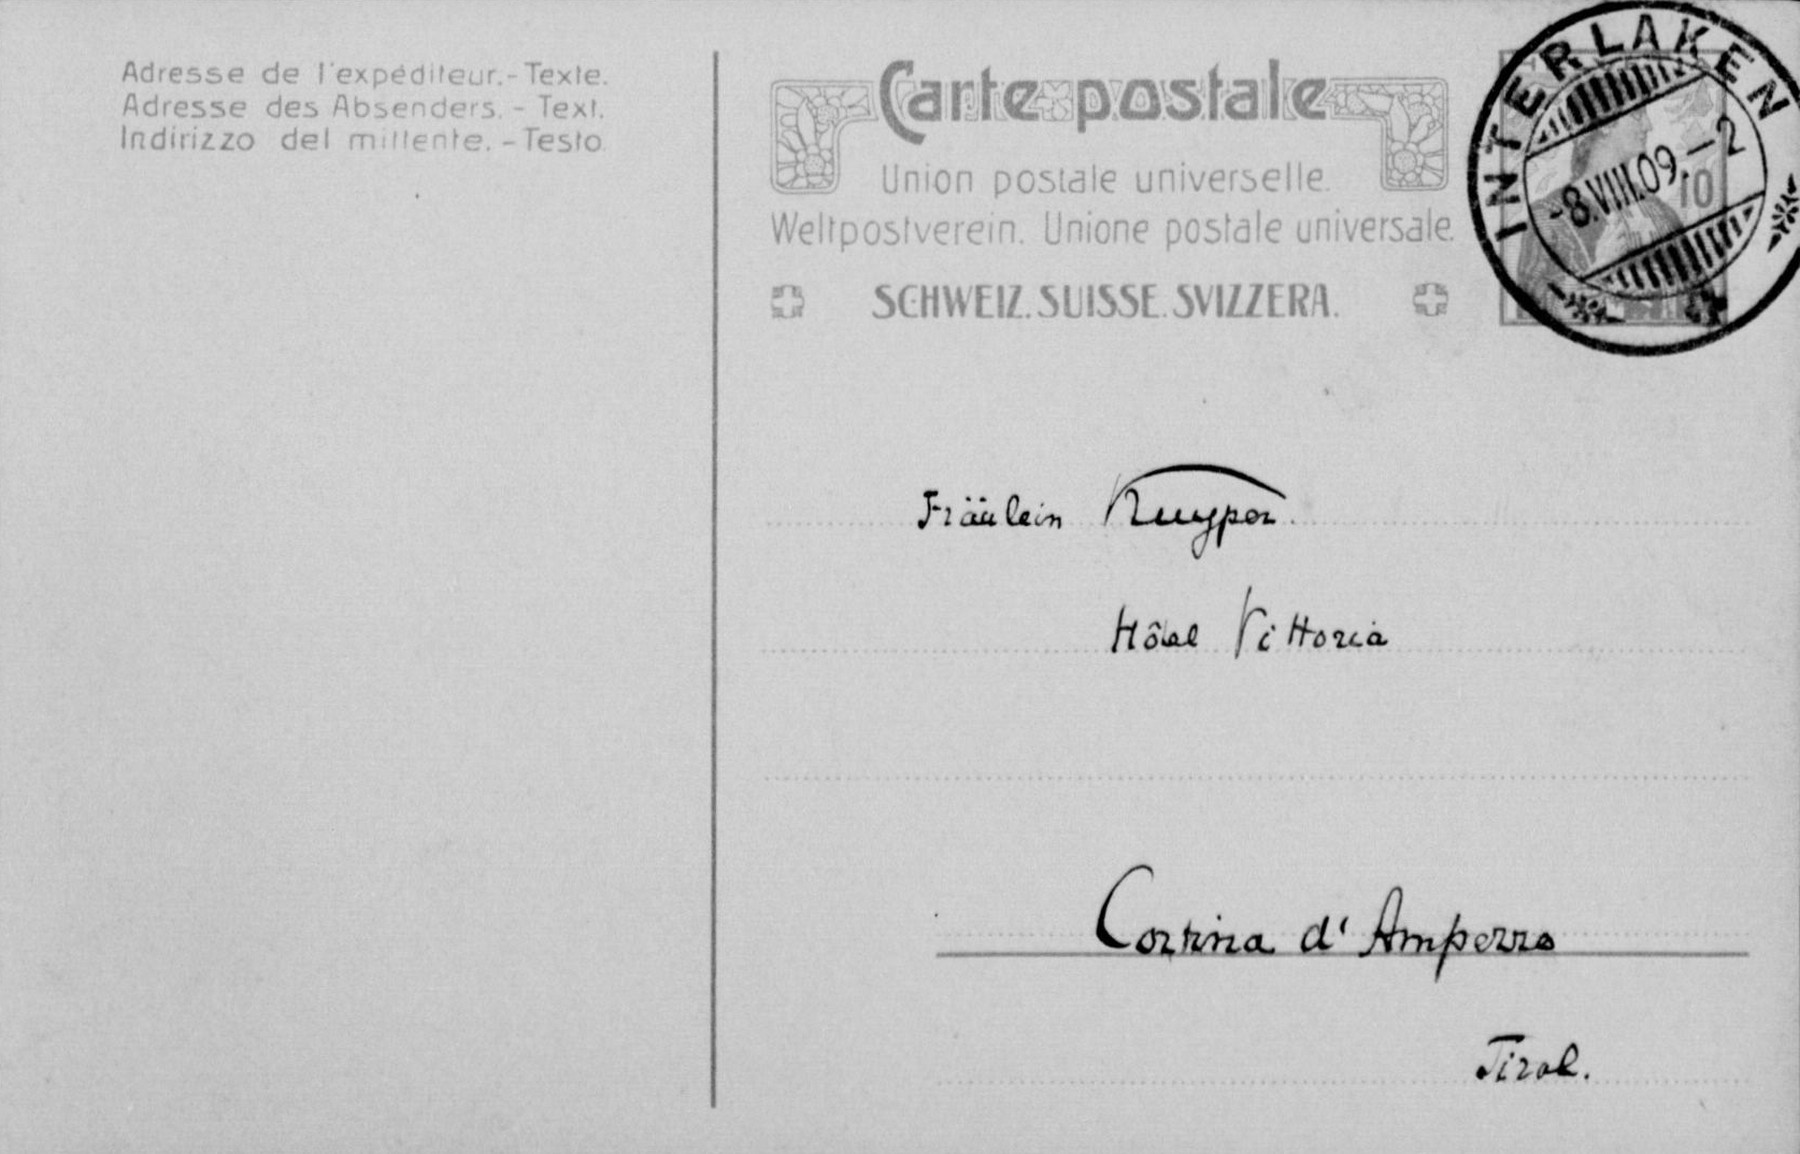 Adresse de l'expéditeur.-Texte.
Adresse des Absenders. - Text.
Indirizzo del mittente. - Testo.
Carte postale
Union postale universelle.
Weltpostverein. Unione postale universale.
SCHWEIZ. SUISSE. SVIZZERA.
INTERLAKEN
-8.VIII.09.-2
10
Fräulein Kuyper.
Hôtel Vittoria
Cortina d'Amperzo
Tirol.